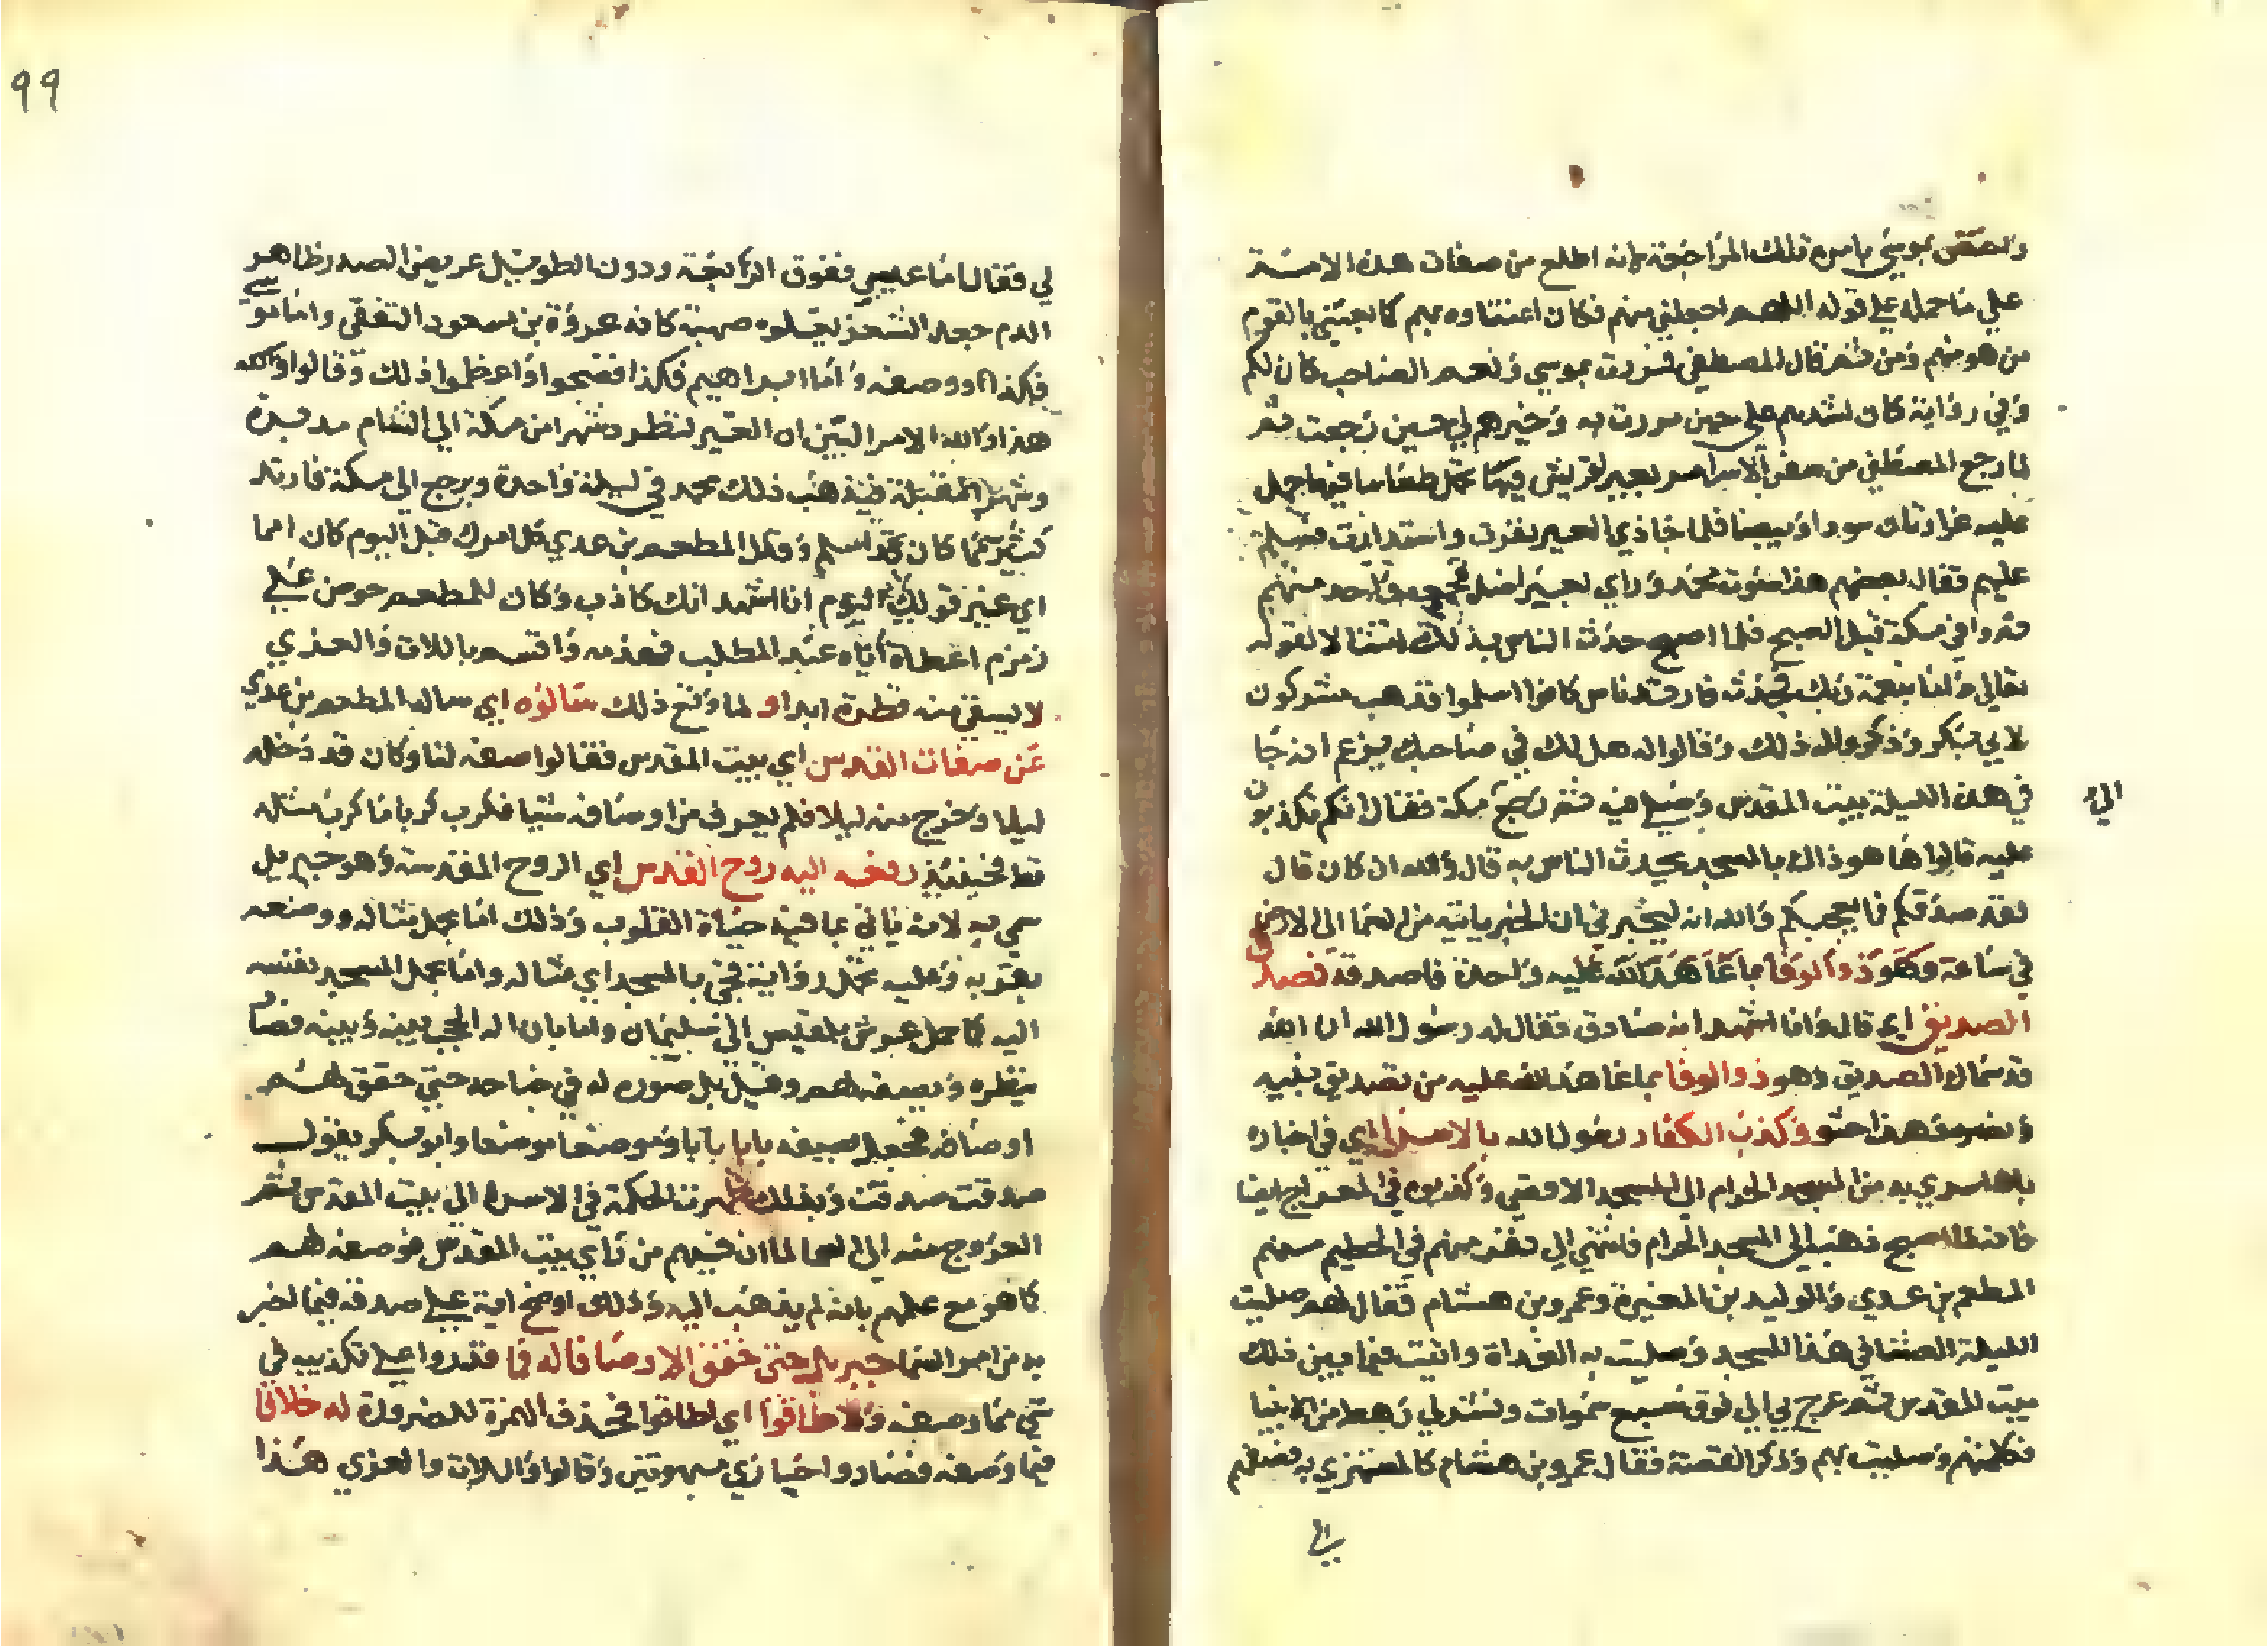 واختص موسى بامره تلك المراجعة لانه اطلع من صفات هذه الامة
على ما حمله على قوله اللهم اجعلني منهم فكان اعتناوه بهم كما يعتني بالقوم
من هو منهم ومن ثم قال المصطفى فمررت بموسى ونعم الصاحب كان لكم
وفي رواية كان اشدهم علي حين مررت به وخيرهم لي حين رجعت ثم
لما رجع المصطفى من سفر الاسرا مر بعير لقريش تحمل طعاما فيها جمل
عليه غرارتان سودا وبيضا فلما حاذي العير نفرت واستدارت فسلم
عليهم فقال بعضهم هذا صوت محمد وراي بعير اضل جمعه واحد منهم
ثم وافى مكة قبل الصبح فلما اصبح حدث الناس بذلك امتثالا لقوله
تعالى واما بنعمة ربك فحدث فارتد ناس كانوا اسلموا فذهب مشركون
لابي بكر وذكروا له ذلك وقالوا له هل لك في صاحبك يزعم انه جا
في هذه الليلة بيت المقدس وصلى فيه ثم رجع مكة فقال انكم تكذبون
الى
عليه قالوا ها هو ذاك بالمسجد يحدث الناس به قال والله ان كان قال
لقد صدقكم فما يعجبكم والله انه ليخبرني ان الخبر ياتيه من السما الى الارض
في ساعة وهو ذو الوفا بما عاهد الله عليه واحدة فاصدقه تصد
الصديق اي قال وانا اشهد انه صادق فقال له رسول الله ان الله
قد سماك الصديق وهو ذو الوفا بما عاهد الله عليه من تصديق نبيه
وكذب الكفار رسول الله بالاسرا اي في اخباره
بانه اسري به من المسجد الحرام الى المسجد الاقصى وكذبوه في المعراج ايضا
فانه لما اصبح ذهب الى المسجد الحرام فانتهى الى نفر منهم في الحطيم منهم
المطعم بن عدي والوليد بن المغيرة وعمرو بن هشام فقال لهم صليت
الليلة العشا في هذا المسجد وصليت به الغداة واتيت فيما بين ذلك
بيت المقدس ثم عرج بي الى فوق سبع سموات ونشر لي رهط من الانبيا
فكلمتهم وصليت بهم وذكر القصة فقال عمرو بن هشام كالمستهزي به صفهم
لي
99
لي فقال اما عيسى ففوق الربعة ودون الطويل عريض الصدر ظاهر
الدم جعد الشعر يعلوه صهبة كانه عروة بن مسعود الثقفي واما موسى
فكذا ووصفه واما ابراهيم فكذا فضجوا واعظموا ذلك وقالوا والله
هذا والله الامر البين ان العير لتطرد شهرا من مكة الى الشام مدبرة
وشهرا مقبلة فيذهب ذلك محمد في ليلة واحدة ويرجع الى مكة فارتد
كثير ممن كان قد اسلم وقال المطعم بن عدي كل امرك قبل اليوم كان امما
اي غير قولك اليوم انا اشهد انك كاذب وكان للمطعم حوض على
زمزم اعطاه اياه عبد المطلب فهدمه واقسم باللات والعزي
لا يسقي منه قطرة ابدا ولما وقع ذلك سالوه اي ساله المطعم بن عدي
عن صفات القدس اي بيت المقدس فقالوا صفه لنا وكان قد دخله
ليلا وخرج منه ليلا فلم يعرف من اوصافه شيا فكرب كربا ما كرب مثله
قط فحينئذ رفعه اليه روح القدس اي الروح المقدسة وهو جبريل
سمي به لانه ياتي بما فيه حياة القلوب وذلك اما بجعل مثاله ووضعه
بقربه وعليه تحمل رواية فجي بالمسجد اي مثاله واما بحمل المسجد نفسه
اليه كما حمل عرش بلقيس الى سليمان واما بازالة الحجب بينه وبينه فصار
ينظره ويصفه لهم وقيل بل صوره له في جناحه حتى حقق لهم
اوصافه فجعل يصيفه بابا بابا وموضعا موضعا وابو بكر يقول
صدقت صدقت وبذلك ظهرت الحكمة في الاسرا الى بيت المقدس ثم
العروج منه الى السما لما ان فيهم من راي بيت المقدس فوصفه لهم
كما هو مع علمهم بانه لم يذهب اليه وذلك اوضح اية على صدقه فيما اخبر
به من امر السما جبريل حتى حقق الاوصاف له فما قدروا على تكذيبه في
شي مما وصفه ولا طاقوا اي اطاقوا فحذف الهمزة للضرورة له خلافا
فيما وصفه فصاروا حيارى مبهوتين وقالوا واللات والعزي هذا